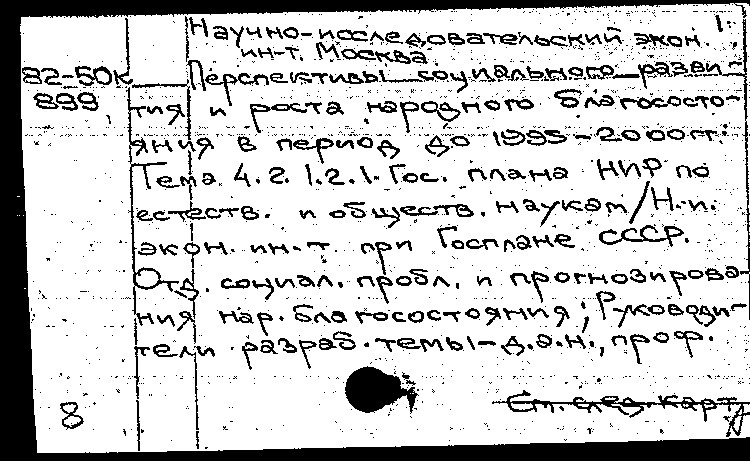 1.
Научно-исследовательский экон.
ин-т. Москва.
82-50к Перспективы социального разви-
899 тия и роста народного благососто-
яния в период до 1995-2000гг:
Тема 4.2.1.2.1. Гос. плана НИР по
естеств. и обществ. наукам/Н.-и.
экон. ин-т при Госплане СССР.
Отд. социал. пробл. и прогнозирова-
ния нар. благосостояния; Руководи-
тели разраб. темы-д.э.н., проф.
См. след. карт.
8